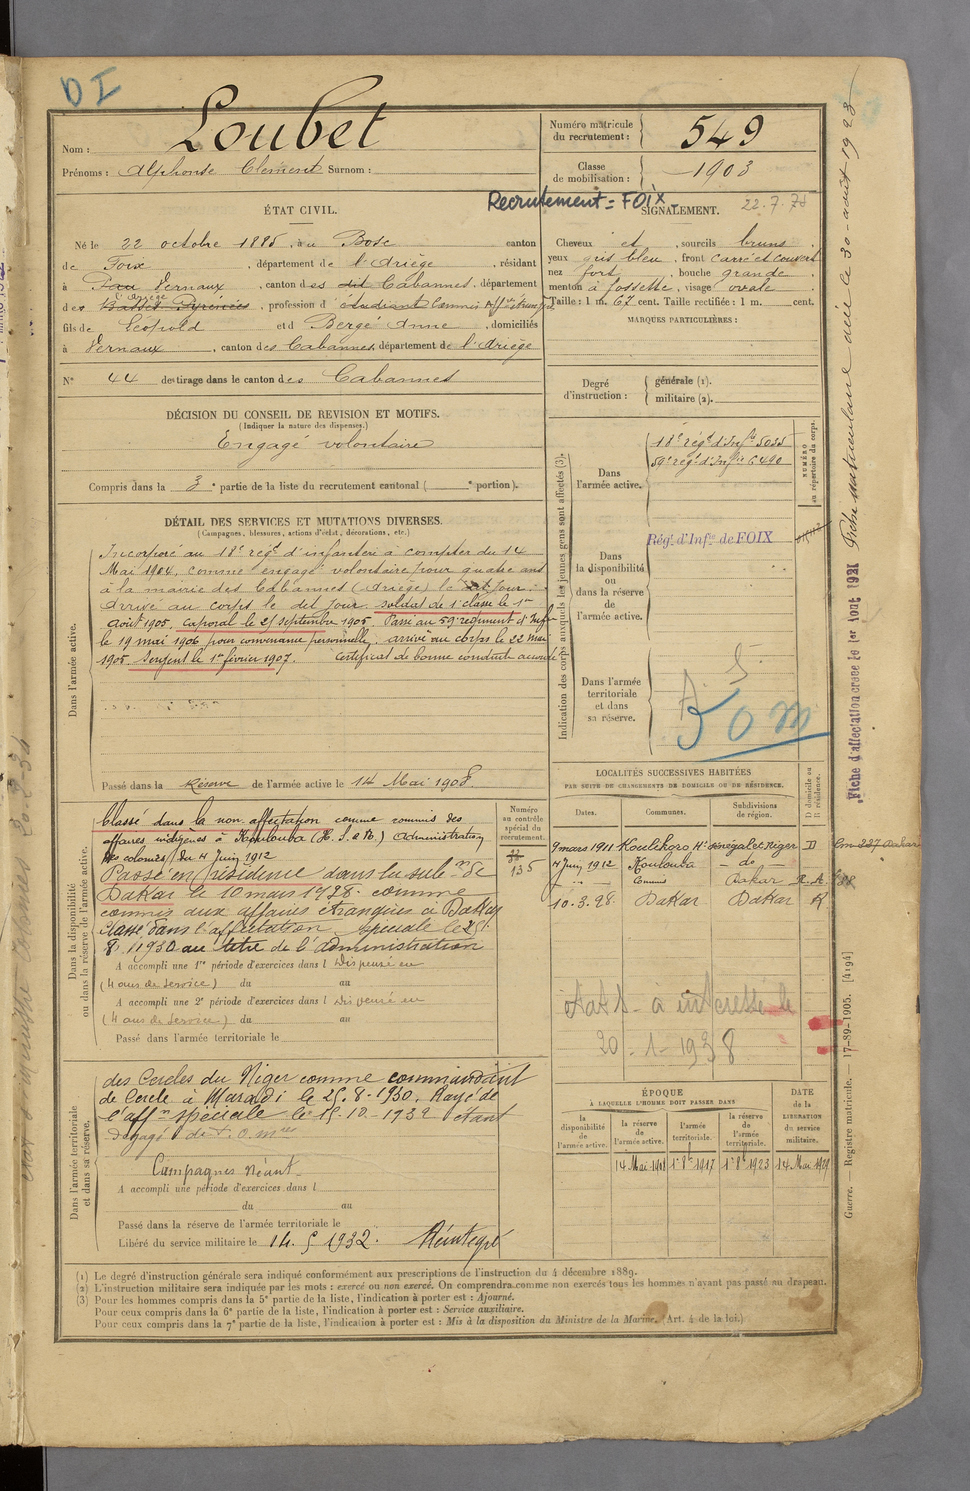 D I
Nom : Loubet
Prénoms : Alphonse Clément Surnom :
Numéro matricule
du recrutement : 549
Classe
de mobilisation : 1903
Recrutement = FOIX
22.7.78
ÉTAT CIVIL.
Né le 22 octobre 1885, à Bosc canton
de Foix, département de l'Ariège, résidant
à Pau Vernaux, canton des dit Cabannes, département
l'Ariège
des Basses Pyrénées, profession d'étudiant Commis
fils de Léopold et d Bergé Anne, domiciliés
à Vernaux, canton des Cabannes, département de l'Ariège
N° 44 de tirage dans le canton des Cabannes
SIGNALEMENT.
Cheveux et, sourcils bruns.
yeux gris bleu, front carré et couvert
nez fort, bouche grande
menton à fossette, visage ovale.
Taille : 1 m. 67 cent. Taille rectifiée : 1 m. cent.
MARQUES PARTICULIÈRES :
Degré
d'instruction :
générale (1).
militaire (2).
DÉCISION DU CONSEIL DE REVISION ET MOTIFS.
(Indiquer la nature des dispenses.)
Engagé volontaire
Compris dans la 3e partie de la liste du recrutement cantonal ( e portion).
DÉTAIL DES SERVICES ET MUTATIONS DIVERSES.
(Campagnes, blessures, actions d'éclat, décorations, etc.)
Dans l'armée active.
Incorporé au 18e régt d'infanterie à compter du 14
Mai 1904, comme engagé volontaire pour quatre ans
à la mairie des Cabannes (Ariège) le dit jour.
Arrivé au corps le dit jour. Soldat de 1e classe le 1er
août 1905. Caporal le 25 septembre 1905. Passé au 59e régiment d'Infie
le 19 mai 1906 pour convenance personnelle. arrivé au corps le 22 mai
1905. Sergent le 1er février 1907. Certificat de bonne conduite accordé
Passé dans la Réserve de l'armée active le 14 Mai 1908.
Indication des corps auxquels les jeunes gens sont affectés (3).
NUMÉRO
au répertoire du corps.
Dans
l'armée active.
18e régt d'Infie 5035
59e régt d'Infie 6490
Dans
la disponibilité
ou
dans la réserve
de
l'armée active.
Régt d'Infie de FOIX
Dans l'armée
territoriale
et dans
sa réserve.
LOCALITÉS SUCCESSIVES HABITÉES
PAR SUITE DE CHANGEMENTS DE DOMICILE OU DE RÉSIDENCE.
Dates. Communes. Subdivisions
de région.
D domicile ou
R résidence.
9 mars 1911 Koulikoro Ht Sénégal et Niger D
4 Juin 1912 Koulouba — do —
Commis Dakar
10.3.28 Dakar Dakar R
Dans la disponibilité
ou dans la réserve de l'armée active.
Numéro
au contrôle
spécial du
recrutement.
Classé dans la non affectation comme commis des
affaires indigènes à Koulouba (H. S. et N.) Administration
des colonies, du 4 Juin 1912
Passé en résidence dans la subon de
Dakar le 10 mars 1928. comme
commis aux affaires étrangères à Dakar
classé dans l'affectation spéciale le 25.
8. 1930 au titre de l'administration
A accompli une 1re période d'exercices dans l Dispensé en
(4 ans de service) du au
A accompli une 2e période d'exercices dans l Dispensé en
(4 ans de service) du au
Passé dans l'armée territoriale le
Dans l'armée territoriale
et dans sa réserve.
des Cercles du Niger comme commandant
de Cercle à Maradi le 25.8.1930. Rayé de
l'affon spéciale le 15.10.1932 étant
dégagé de t. o. mres
Campagnes Néant.
A accompli une période d'exercices dans l
du au
Passé dans la réserve de l'armée territoriale le
Libéré du service militaire le 14. 5 1932. Réintégré
ÉPOQUE
À LAQUELLE L'HOMME DOIT PASSER DANS
DATE
de la
LIBÉRATION
du service
militaire.
la
disponibilité
de
l'armée active.
la réserve
de
l'armée active.
l'armée
territoriale.
la réserve
de
l'armée
territoriale.
14 Mai 1908 1er 8bre 1917 1er 8bre 1923 14 Mai 1929
20-1-1938
Fiche matriculaire
Fiche d'affectation créée le 1er Aout 1931
Guerre. — Registre matricule. — 17-89-1905. [4194]
(1) Le degré d'instruction générale sera indiqué conformément aux prescriptions de l'instruction du 4 décembre 1889.
(2) L'instruction militaire sera indiquée par les mots : exercé ou non exercé. On comprendra comme non exercés tous les hommes n'ayant pas passé au drapeau.
(3) Pour les hommes compris dans la 5e partie de la liste, l'indication à porter est : Ajourné.
Pour ceux compris dans la 6e partie de la liste, l'indication à porter est : Service auxiliaire.
Pour ceux compris dans la 7e partie de la liste, l'indication à porter est : Mis à la disposition du Ministre de la Marine. (Art. 4 de la loi.)